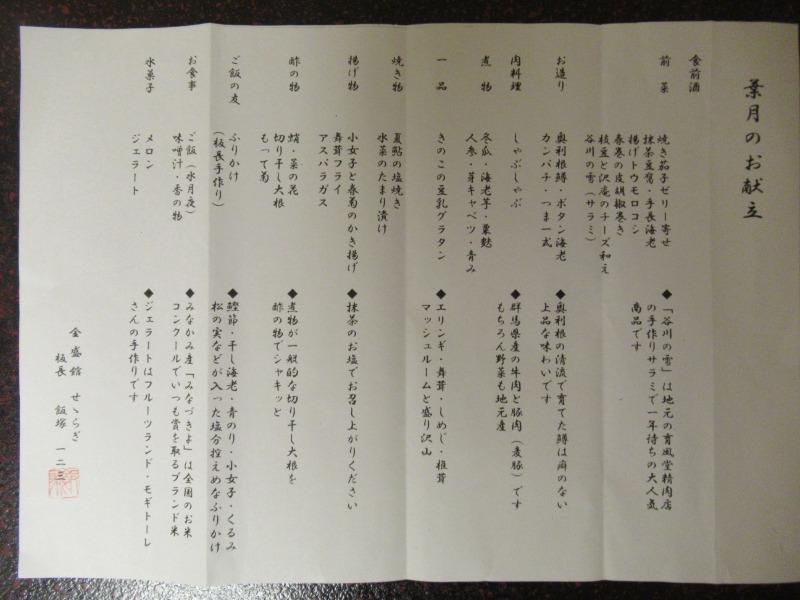 葉月のお献立
食前酒
前菜
焼き茄子ゼリー寄せ
抹茶豆腐・手長海老
揚げトウモロコシ
春巻の皮胡椒巻き
枝豆と沢庵のチーズ和え
谷川の雪（サラミ）
◆「谷川の雪」は地元の育風堂精肉店
の手作りサラミで一年待ちの大人気
商品です
お造り
奥利根鱒・ボタン海老
カンパチ・つま一式
◆奥利根の清流で育てた鱒は癖のない
上品な味わいです
肉料理
しゃぶしゃぶ
◆群馬県産の牛肉と豚肉（麦豚）です
もちろん野菜も地元産
煮物
冬瓜・海老芋・粟麩
人参・芽キャベツ・青み
一品
きのこの豆乳グラタン
◆エリンギ・舞茸・しめじ・椎茸
マッシュルームと盛り沢山
焼き物
夏鮎の塩焼き
水菜のたまり漬け
揚げ物
小女子と春菊のかき揚げ
舞茸フライ
アスパラガス
◆抹茶のお塩でお召し上がりください
酢の物
蛸・菜の花
切り干し大根
もって菊
◆煮物が一般的な切り干し大根を
酢の物でシャキッと
ご飯の友
ふりかけ
（板長手作り）
◆鰹節・干し海老・青のり・小女子・くるみ
松の実などが入った塩分控えめなふりかけ
お食事
ご飯（水月夜）
味噌汁・香の物
◆みなかみ産「みなづきよ」は全国のお米
コンクールでいつも賞を取るブランド米
水菓子
メロン
ジェラート
◆ジェラートはフルーツランド・モギトーレ
さんの手作りです
金盛館 せゝらぎ
板長 飯塚 一二三